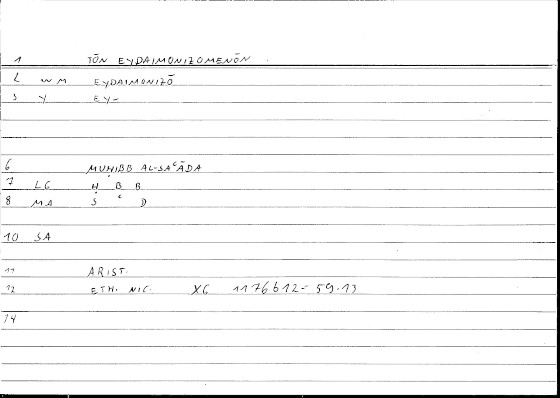 1 TŌN EYDAIMONIZOMENŌN
L WM EYDAIMONIZŌ
S Y EY-
6 MUḤIBB AL-SAʿĀDA
7 LG Ḥ B B
8 MA S ʿ D
10 SA
11 ARIST.
12 ETH. NIC. XG 1176b12-59.13
14